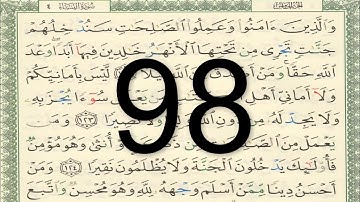 سُورَةُ النِّسَاءِ ٤
وَٱلَّذِينَ ءَامَنُوا۟ وَعَمِلُوا۟ ٱلصَّٰلِحَٰتِ سَنُدْخِلُهُمْ
جَنَّٰتٍ تَجْرِى مِن تَحْتِهَا ٱلْأَنْهَٰرُ خَٰلِدِينَ فِيهَآ أَبَدًا وَعْدَ
ٱللَّهِ حَقًّا وَمَنْ أَصْدَقُ مِنَ قِيلًا لَّيْسَ بِأَمَانِيِّكُمْ
وَلَآ أَمَانِىِّ أَهْلِ يَعْمَلْ سُوٓءًا يُجْزَ بِهِۦ
وَلَا يَجِدْ لَهُۥ دُونِ ٱللَّهِ نَصِيرًا ١٢٣ وَمَن
يَعْمَلْ مِنَ أُنثَىٰ وَهُوَ مُؤْمِنٌ
98
فَأُو۟لَٰٓئِكَ يَدْخُلُونَ ٱلْجَنَّةَ وَلَا يُظْلَمُونَ نَقِيرًا ١٢٤ وَمَنْ
أَحْسَنُ دِينًا مِّمَّنْ أَسْلَمَ وَجْهَهُۥ لِلَّهِ وَهُوَ مُحْسِنٌ وَٱتَّبَعَ